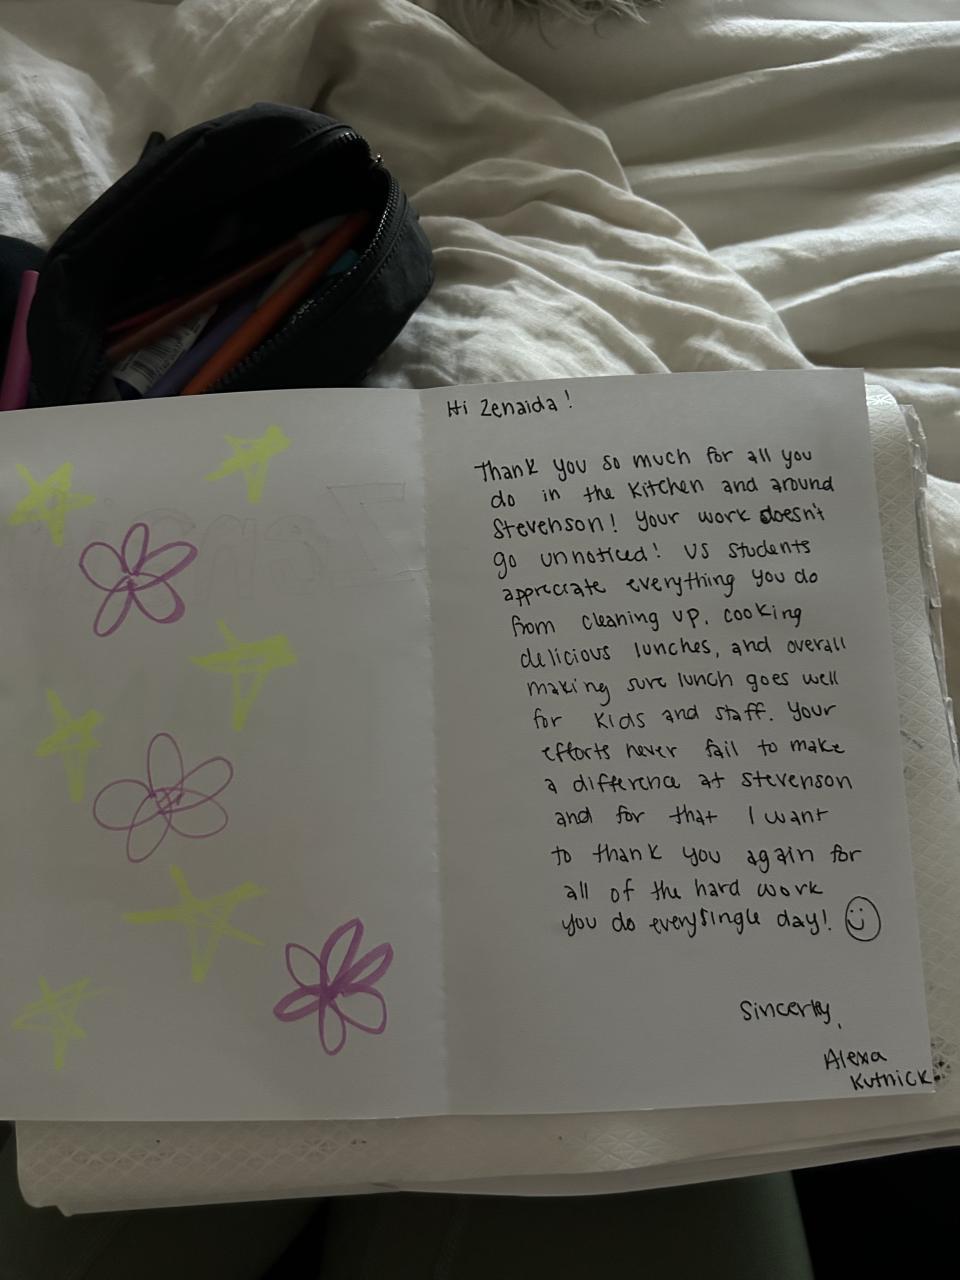 Hi Zenaida!
Thank you so much for all you
do in the kitchen and around
Stevenson! Your work doesn't
go unnoticed! US students
appreciate everything you do
from cleaning up, cooking
delicious lunches, and overall
making sure lunch goes well
for kids and staff. Your
efforts never fail to make
a difference at Stevenson
and for that I want
to thank you again for
all of the hard work
you do everysingle day!
Sincerly,
Alexa
Kutnick